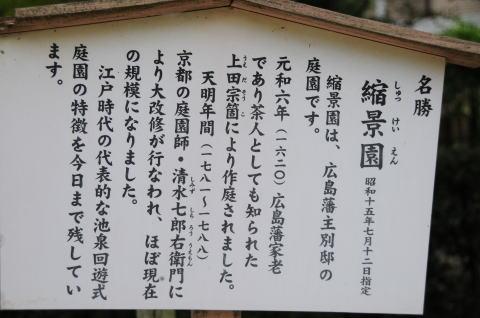 名勝
縮景園 昭和十五年七月十二日指定
しゅっ けい えん
縮景園は、広島藩主別邸の
庭園です。
元和六年(一六二〇)広島藩家老
であり茶人としても知られた
上田宗箇により作庭されました。
うえだそうこ
天明年間(一七八一〜一七八八)
京都の庭園師・清水七郎右衛門に
しみずしちろううえもん
より大改修が行なわれ、ほぼ現在
の規模になりました。
江戸時代の代表的な池泉回遊式
庭園の特徴を今日まで残してい
ます。